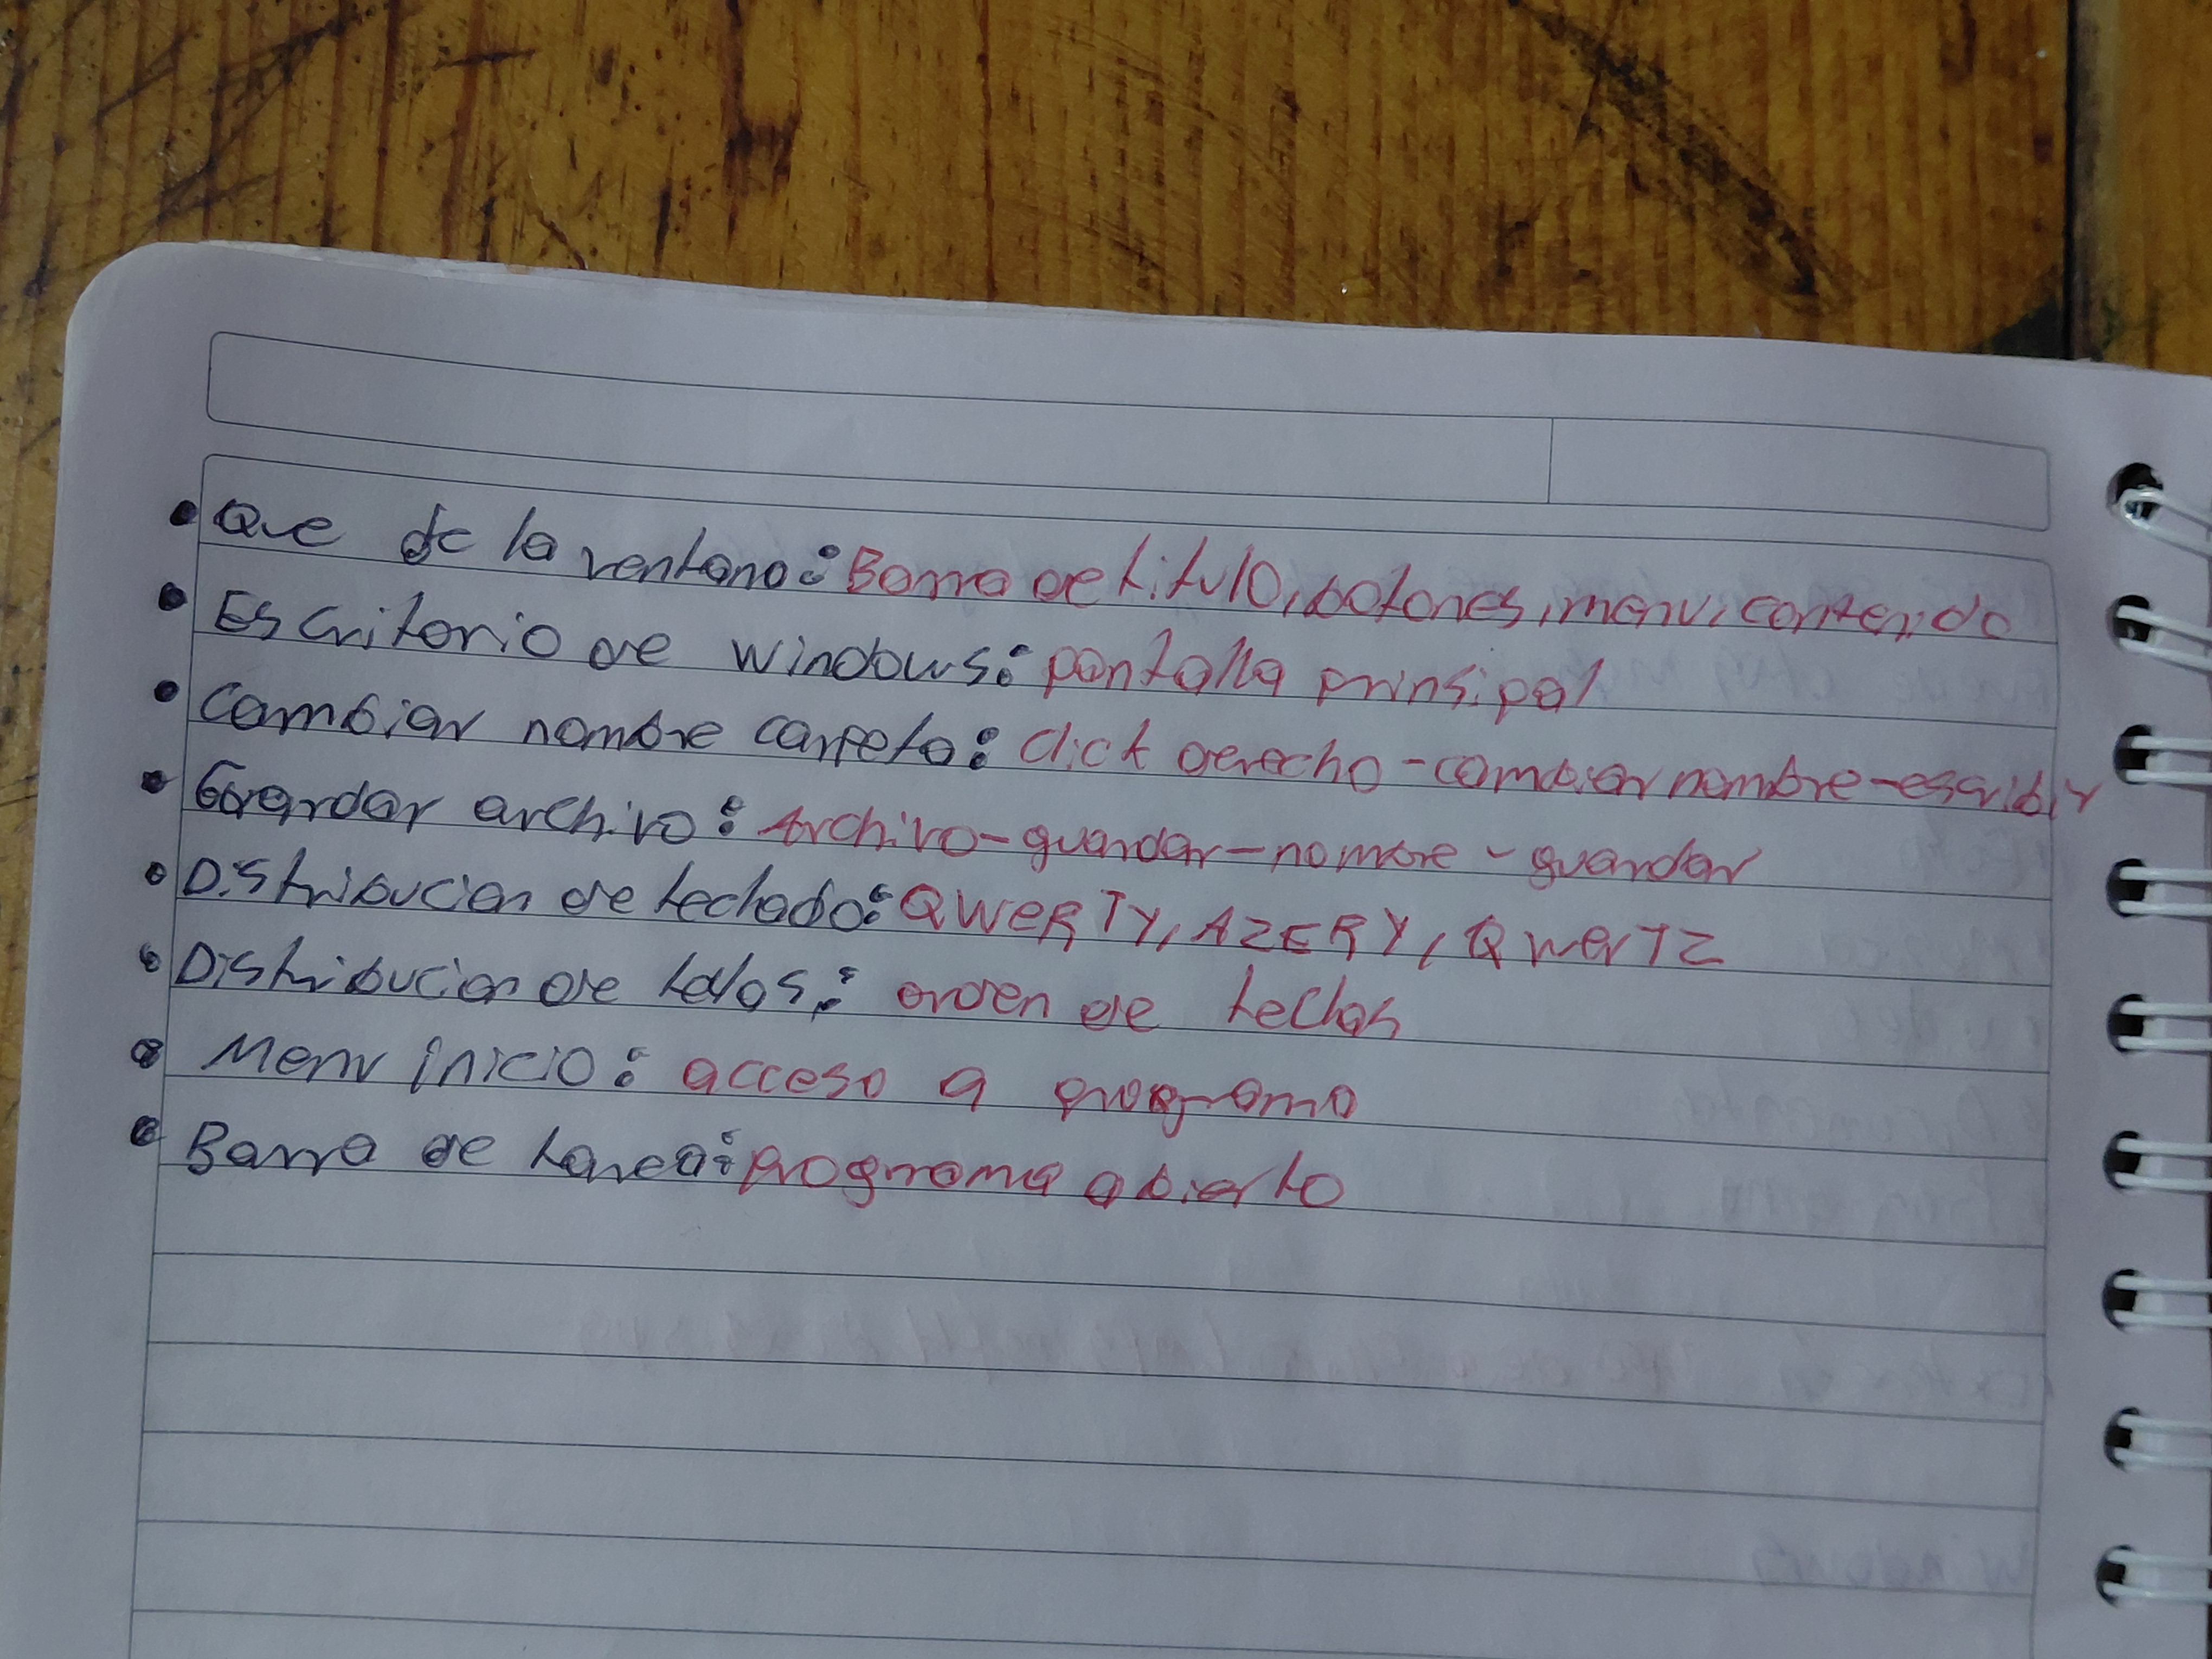 • Que de la ventana: Barra de titulo, botones, menu, contenido
• Escritorio de windows: pantalla prinsipal
• Cambiar nombre carpeta: click derecho - cambiar nombre - escribir
• Guardar archivo: Archivo - guardar - nombre - guardar
• Distribucion de teclado: QWERTY, AZERY, QWerTZ
• Distribucion de : orden de teclas
• Menu inicio: acceso a programa
• Barra de tarea: programa abierto